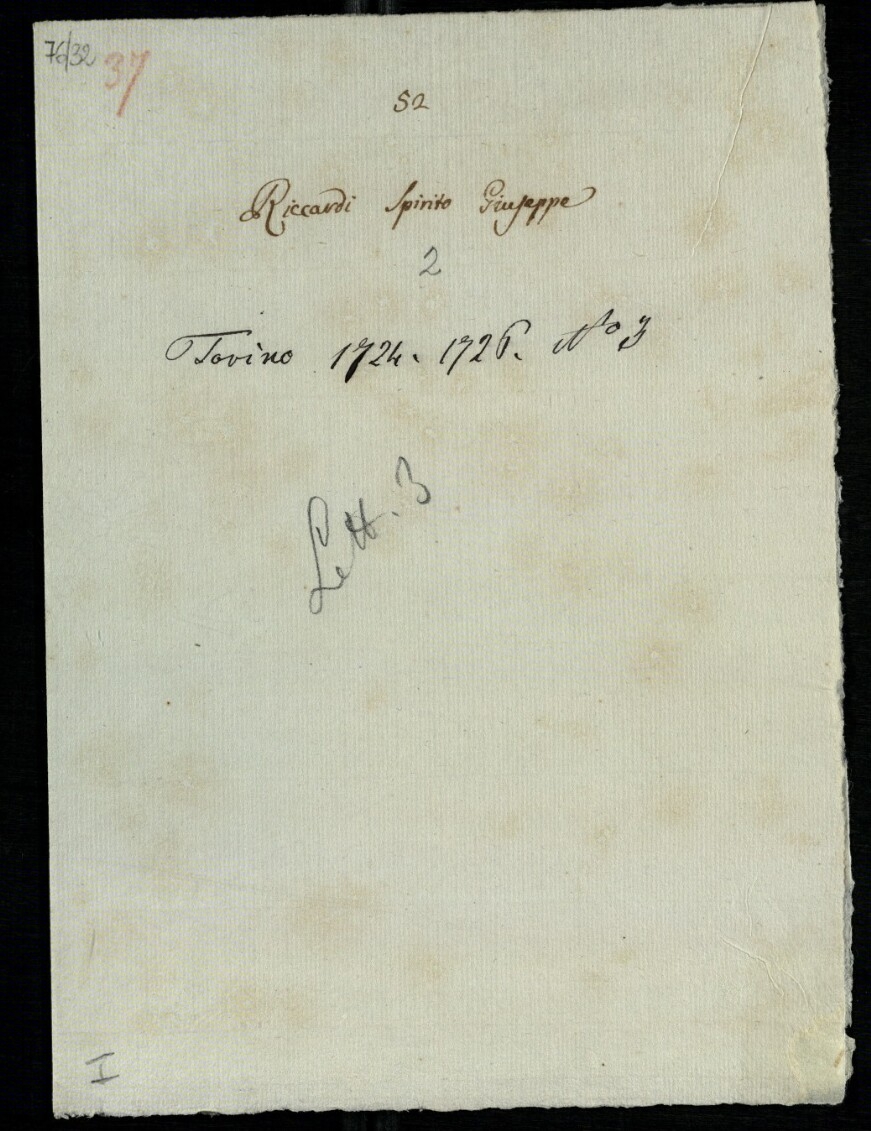 76/32 37
52
Riccardi Spirito Giuseppe
2
Torino 1724. 1726. No 3
Lett. 3
I